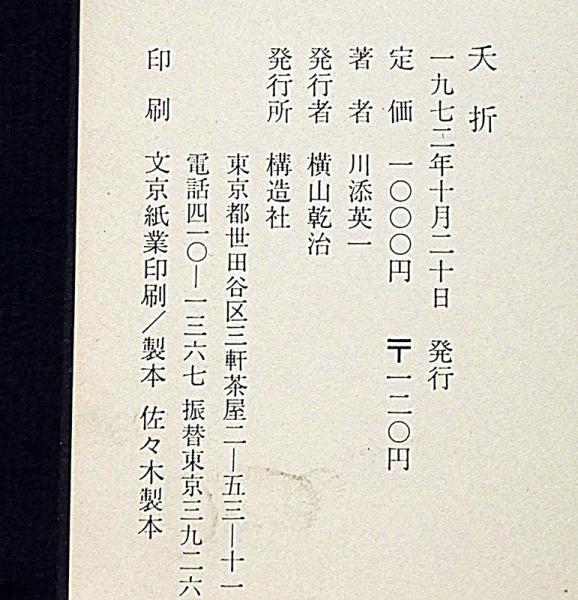 夭折
一九七二年十月二十日 発行
定価 一〇〇〇円 〒一二〇円
著者 川添英一
発行者 横山乾治
発行所 構造社
東京都世田谷区三軒茶屋二―五三―十一
電話四一〇―一三六七 振替東京三九二六
印刷 文京紙業印刷/製本 佐々木製本